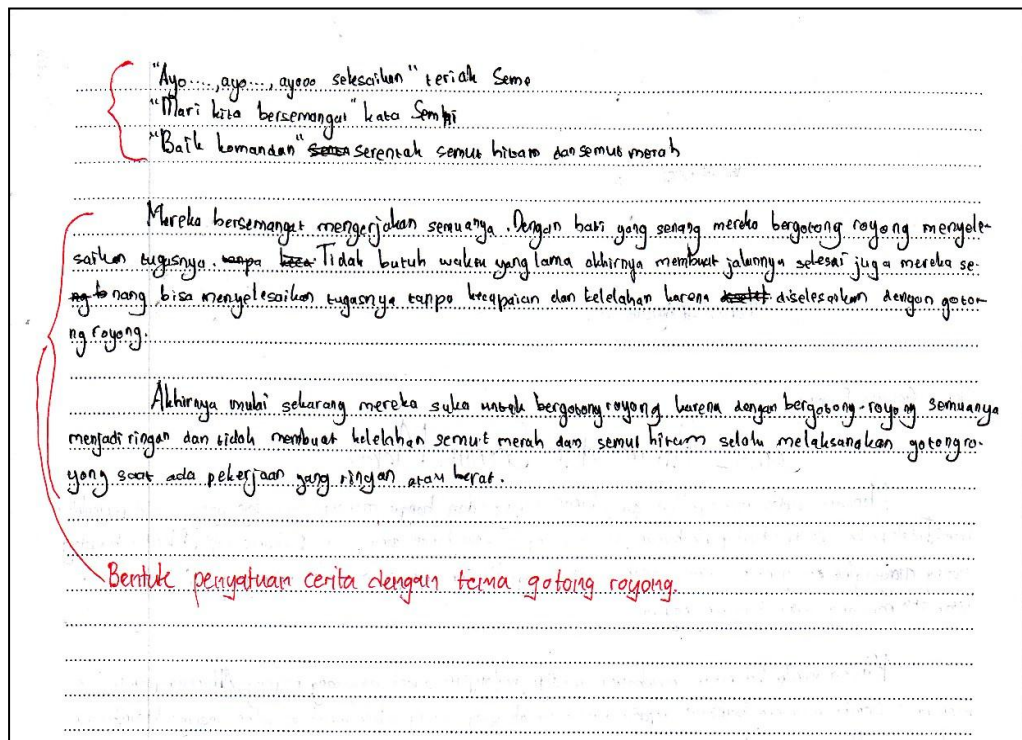 "Ayo...., ayo..., ayooo selesaikan" teriak Seme
"Mari kita bersemangat" kata Semhi
"Baik komandan" serentak semut hitam dan semut merah
Mereka bersemangat mengerjakan semuanya. Dengan hati yang senang mereka bergotong royong menyele-
saikan tugasnya. Tidak butuh waktu yang lama akhirnya membuat jalannya selesai juga mereka se-
nang bisa menyelesaikan tugasnya tanpa kecapaian dan kelelahan karena diselesaikan dengan goto-
ng royong.
Akhirnya mulai sekarang mereka suka untuk bergotong royong karena dengan bergotong-royong semuanya
menjadi ringan dan tidak membuat kelelahan semut merah dan semut hitam selalu melaksanakan gotongro-
yong saat ada pekerjaan yang ringan atau berat.
Bentuk penyatuan cerita dengan tema gotong royong.